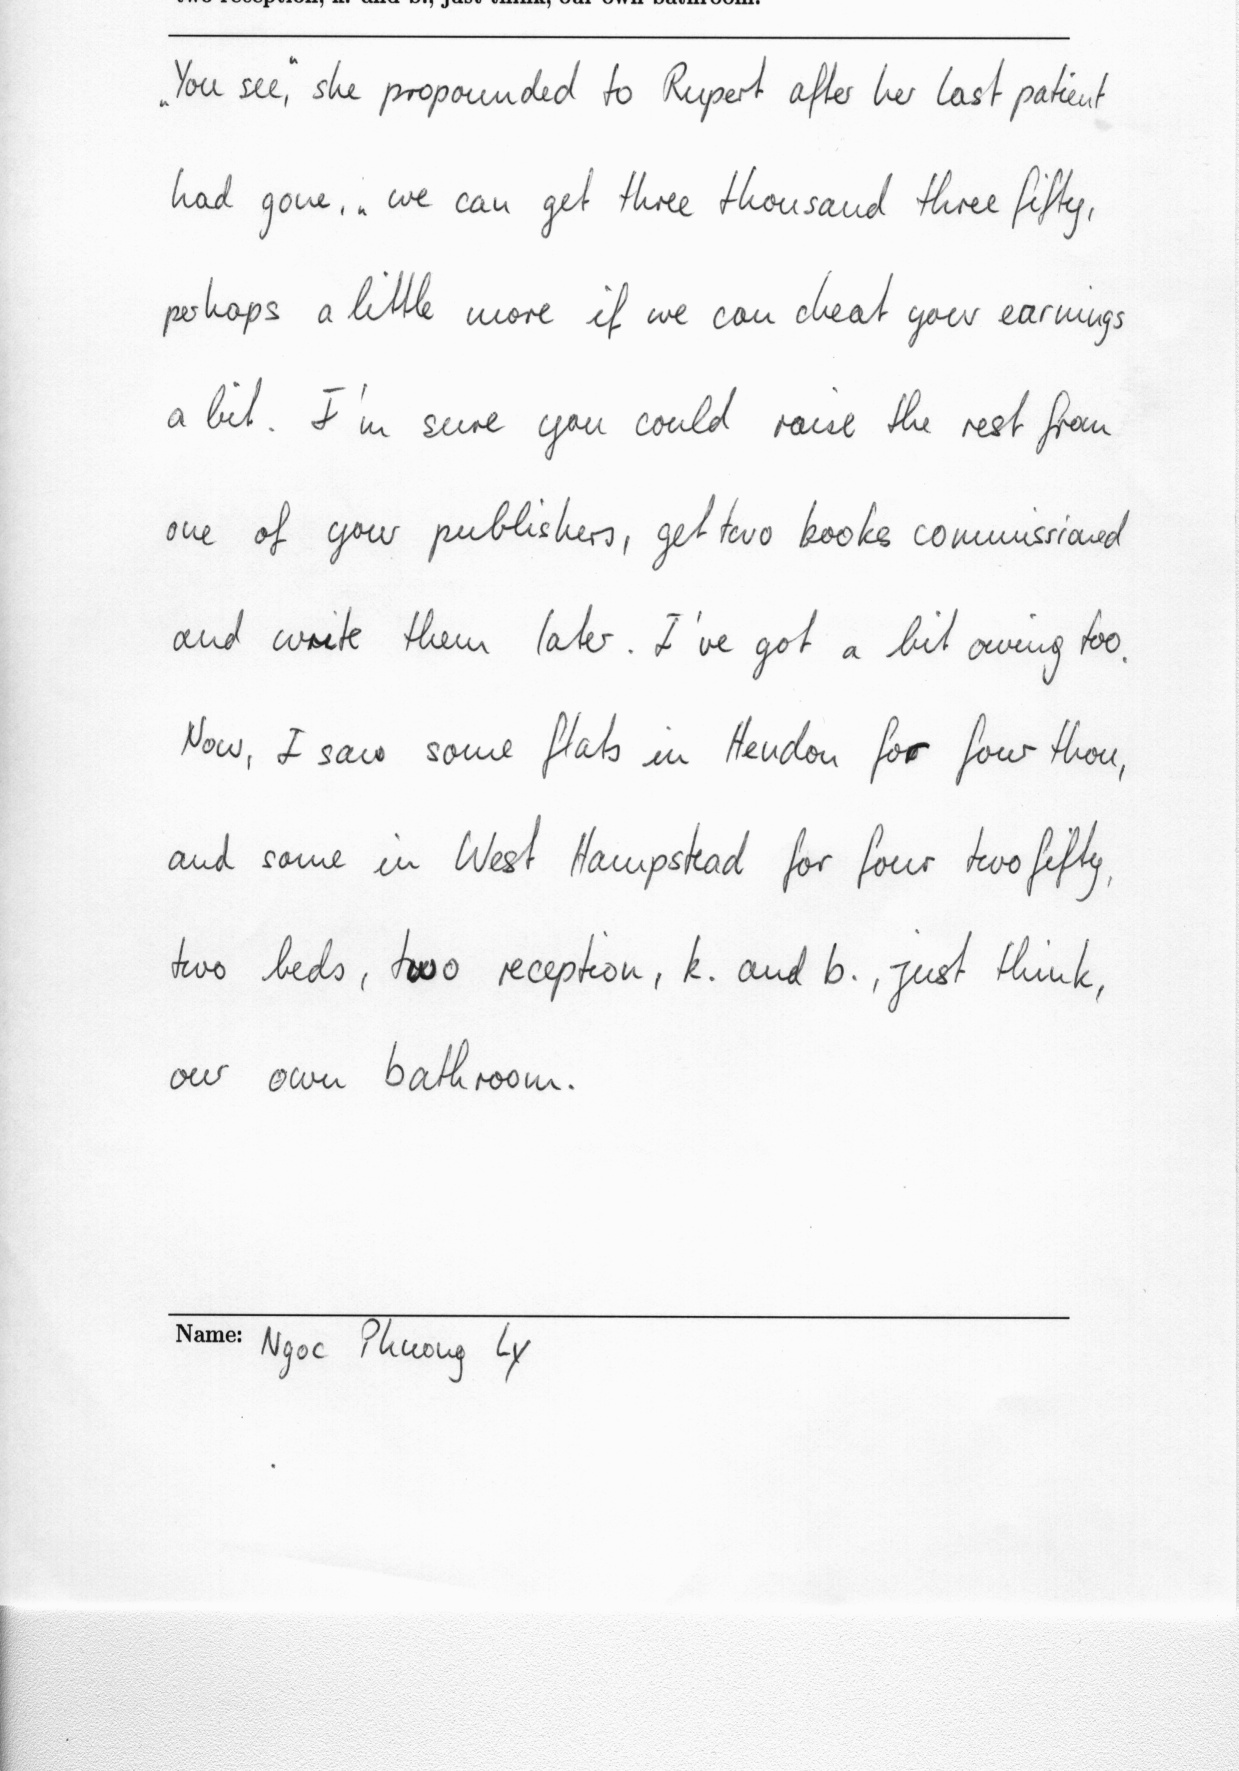 two reception, k. and b., just think, our own bathroom.
„You see,“ she propounded to Rupert after her last patient
had gone, „we can get three thousand three fifty,
perhaps a little more if we can cheat your earnings
a bit. I'm sure you could raise the rest from
one of your publishers, get two books commissioned
and write them later. I've got a bit owing too.
Now, I saw some flats in Hendon for four thou,
and some in West Hampstead for four two fifty,
two beds, two reception, k. and b., just think,
our own bathroom.
Name: Ngoc Phuong Ly